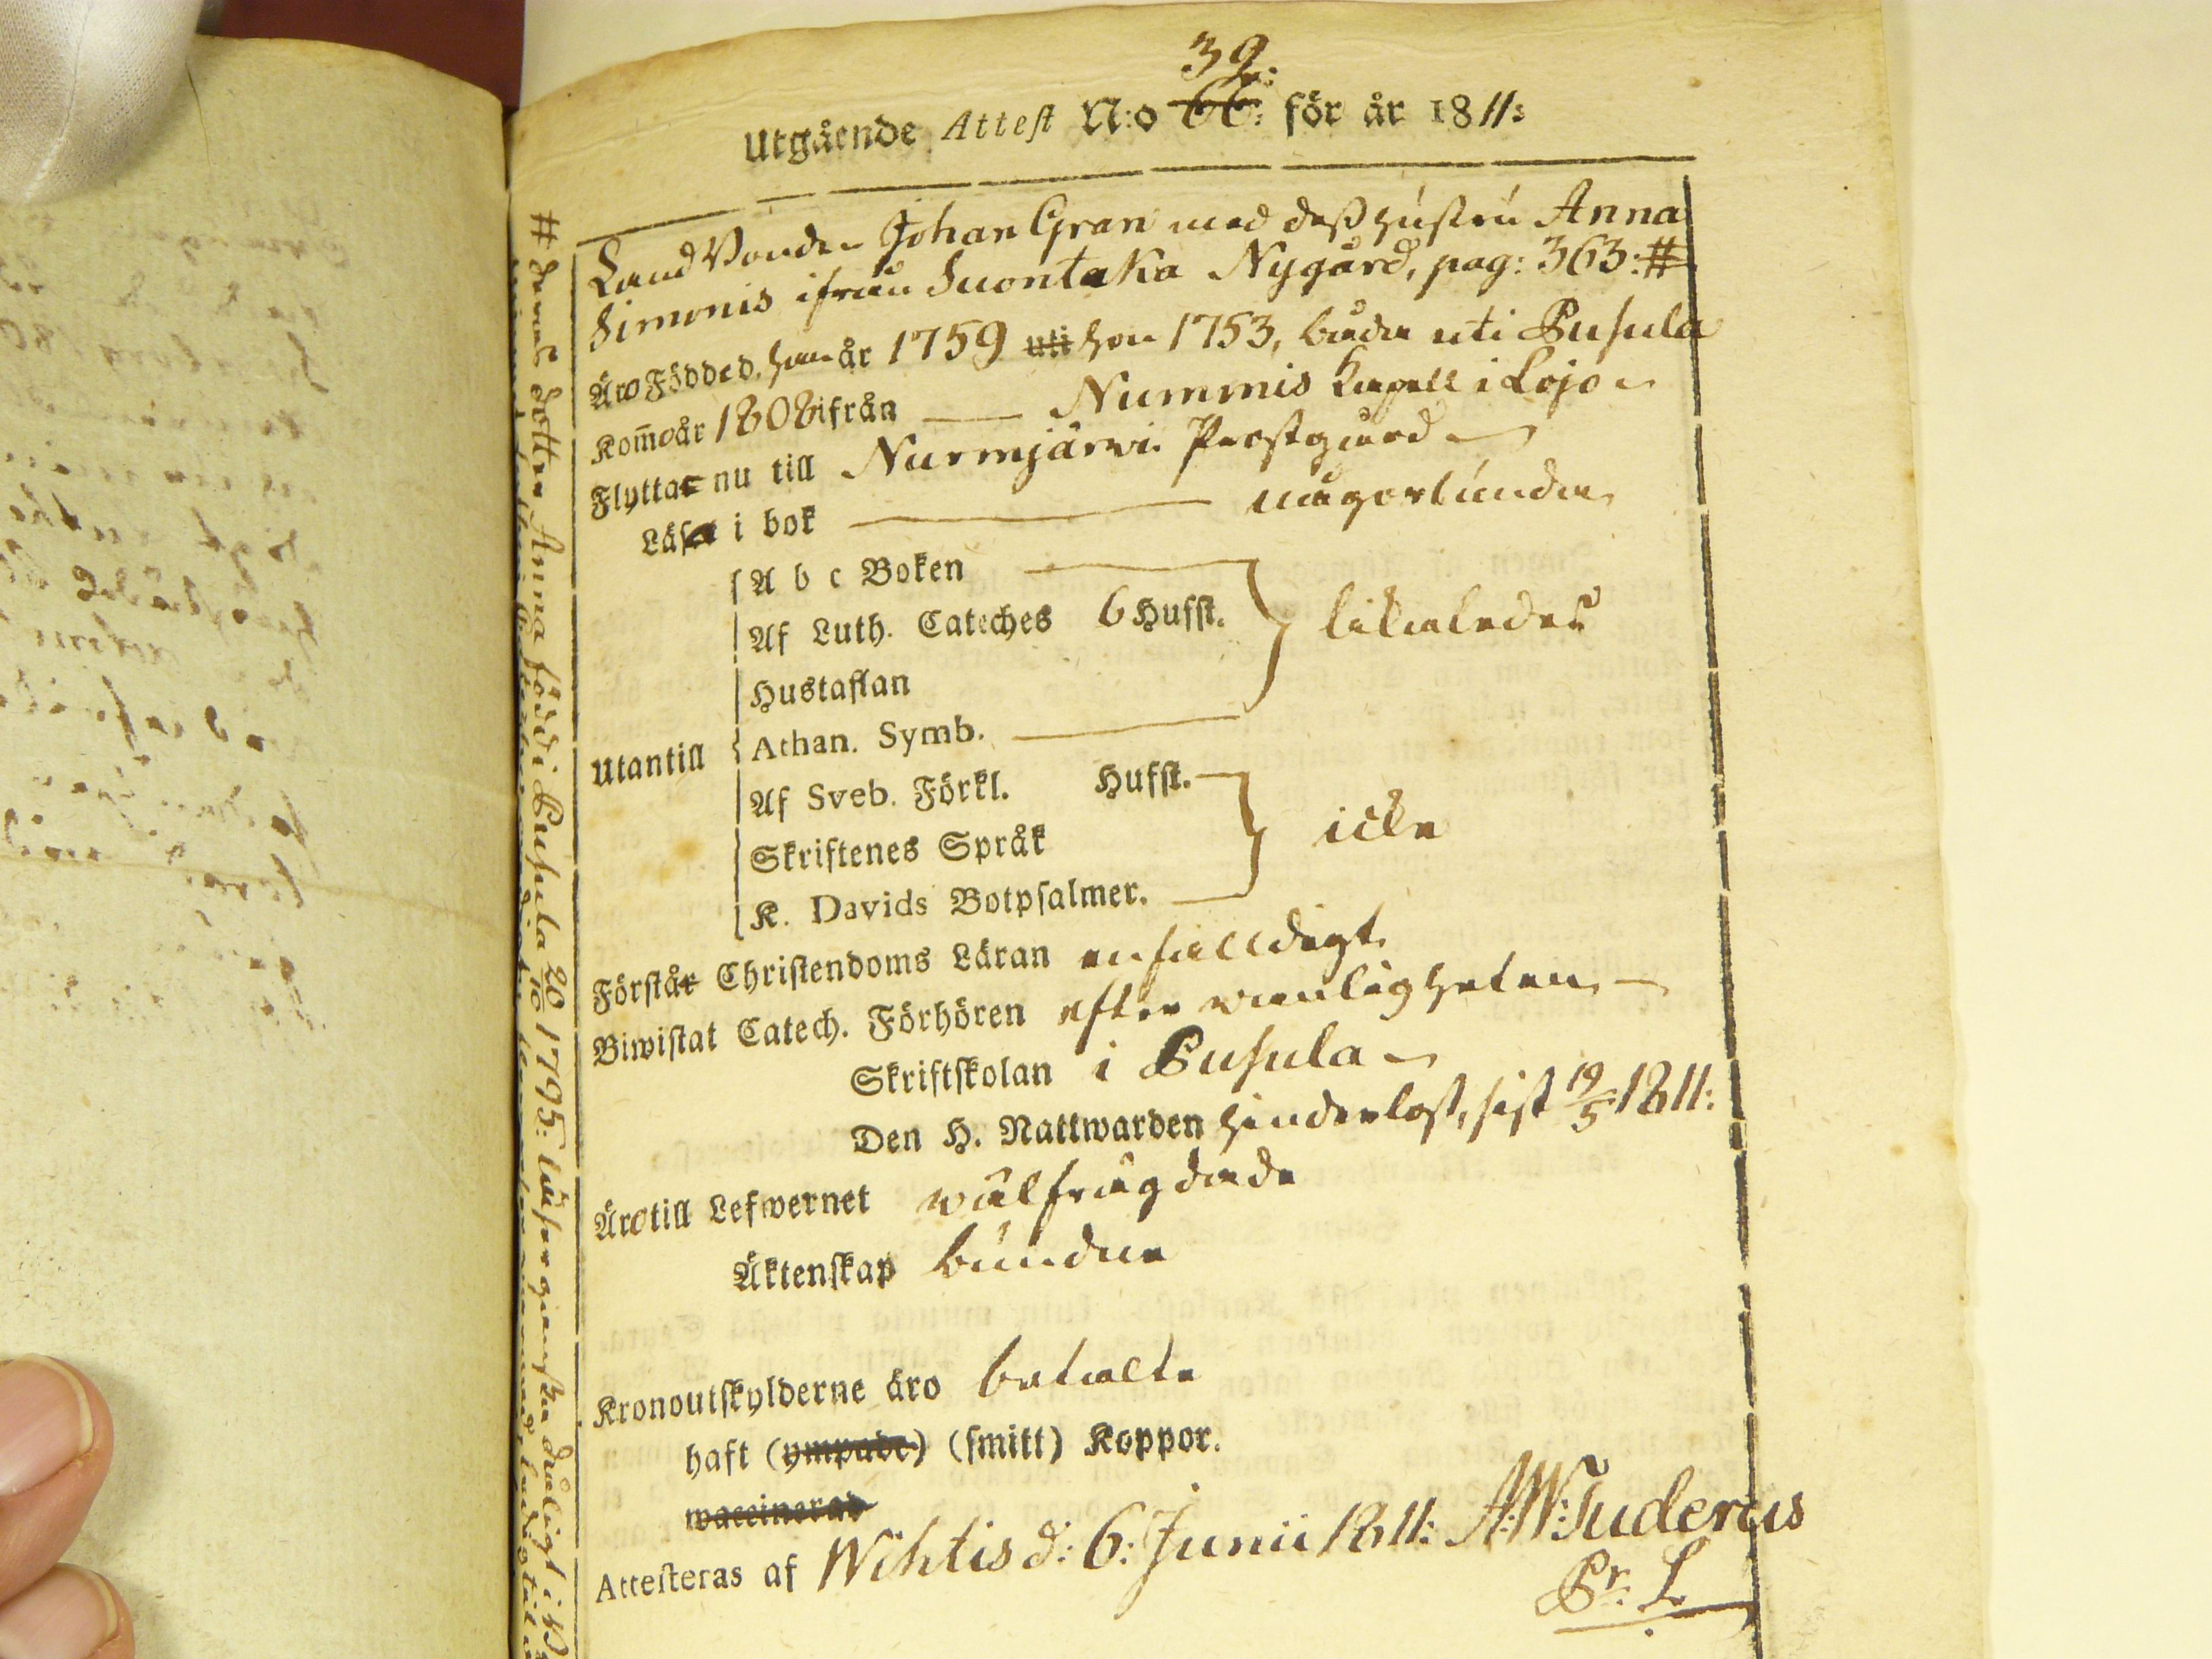 39.
Utgående Attest N:o 66: för år 1811:
Land Bonden Johan Gran med dess hustru Anna
Simonis ifrån Suontaka Nygård, pag: 363: #
Äro Född d. han år 1759 uti hon 1753, både uti Pusula
Kom̄o år 1808 ifrån — Nummis Capell i Lojo
Flyttar nu till Nurmjärvi Prestgård
Läsa i bok — någorlunda
A b c Boken
Af Luth. Cateches 6 Hufst. likaledes
Hustaflan
Utantill Athan. Symb.
Af Sveb. Förkl. Hufst.
Skriftenes Språk icke
K. Davids Botpsalmer.
Förstår Christendoms Läran enfalldigt.
Biwistat Catech. Förhören efter vanligheten
Skriftskolan i Pusula
Den H. Nattwarden hinderlöst, sist 19/5 1811:
Äro till Lefwernet wälfrägdade
Äktenskap bundna
Kronoutskylderne äro betalte
haft (ympade) (smitt) Koppor.
waccinerad
Attesteras af Wihtis d: 6: Junii 1811: A:W: Tuderus
Pr. L
# deras dotter Anna född i Pusula 20/10 1795: läser ganska dråligt i